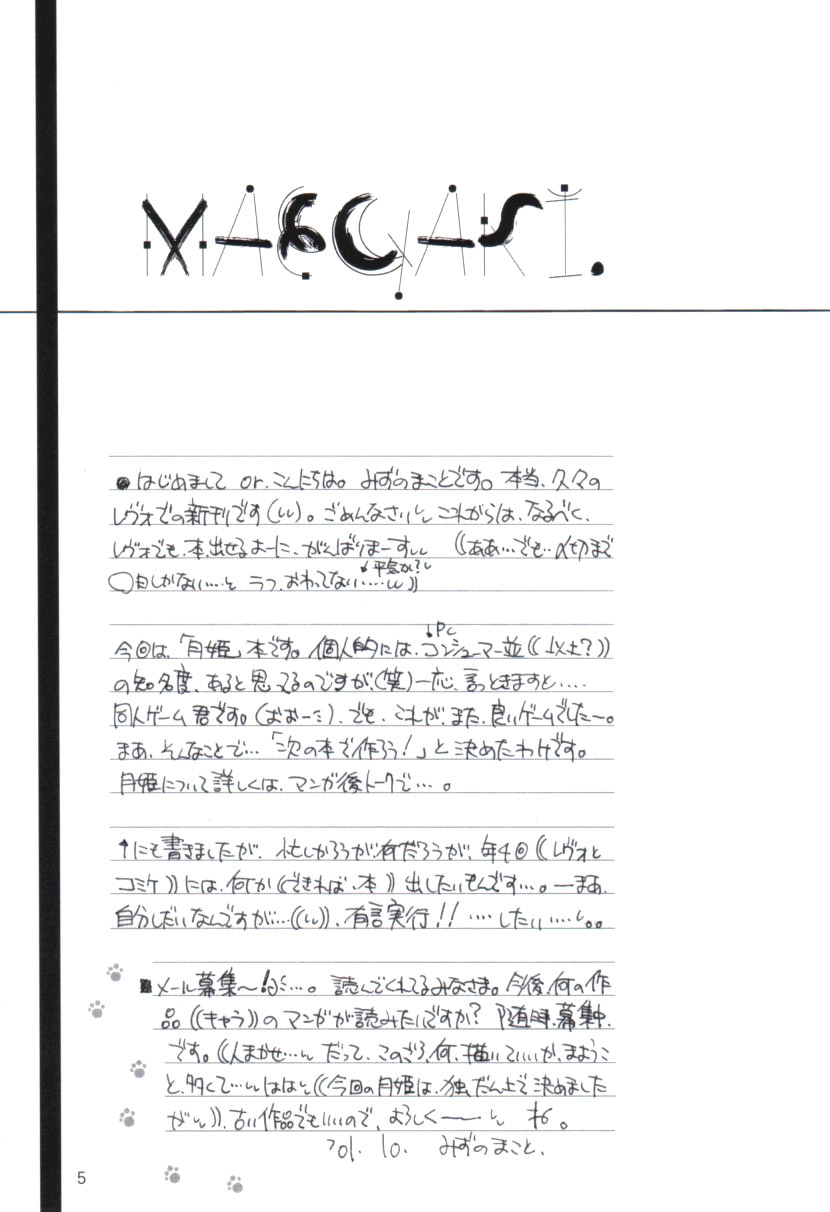 MAEGAKI.
●はじめまして or.こんにちは。みずのまことです。本当、久々の
レヴォでの新刊です(しし)。ごめんなさいしし これからは、なるべく、
レヴォでも、本、出せるよーに、がんばりまーすしし ((ああ…でも…〆切まで
↓平気か?
〇日しかない…と ラフ、おわってない……しし))
↓PC
今回は、「月姫」本です。個人的には、コンシューマー並((以上?))
の知名度、あると思ってるのですが、(笑)一応、言っときますと、….
同人ゲーム君です。(おおーミ)、でも、これが、また、良いゲームでした〜。
まあ、そんなことで…「次の本で作ろう!」と決めたわけです。
月姫について詳しくは、マンガ後トークで…。
↑にも書きましたが、忙しかろうが何だろうが、年4回((レヴォと
コミケ))には、何か((できれば、本))出したいもんです…。―まあ、
自分しだいなんですが…((しし))、有言実行!! ….したい….。。
■メール募集〜!…。読んでくれてるみなさま。今後、何の作
品((キャラ))のマンガが読みたいですか?随時、募集中
です。((人まかせ…しし だって、このごろ、何、描いていいか、まようこ
と、多くて…しし ははし((今回の月姫は、独だん上で決めました
がしし))、古い作品でもいいので、よろしく――しし ネ。
'01. 10. みずのまこと、
5